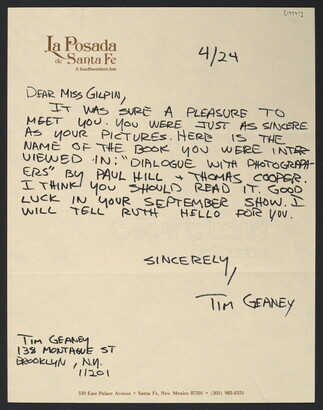 La Posada
de Santa Fe
A Southwestern Inn
4/24
DEAR MISS GILPIN,
IT WAS SURE A PLEASURE TO
MEET YOU. YOU WERE JUST AS SINCERE
AS YOUR PICTURES. HERE IS THE
NAME OF THE BOOK YOU WERE INTER
VIEWED IN: "DIALOGUE WITH PHOTOGRAPH-
ERS" BY PAUL HILL + THOMAS COOPER.
I THINK YOU SHOULD READ IT. GOOD
LUCK IN YOUR SEPTEMBER SHOW. I
WILL TELL RUTH HELLO FOR YOU.
SINCERELY,
TIM GEANEY
TIM GEANEY
138 MONTAGUE ST
BROOKLYN, N.Y.
11201
330 East Palace Avenue • Santa Fe, New Mexico 87501 • (505) 983-6351